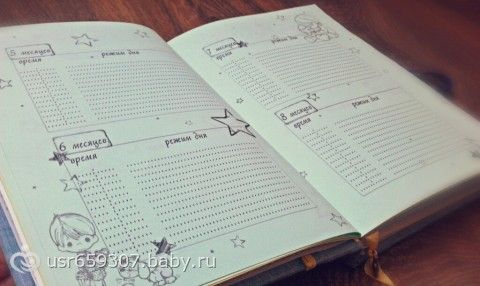 5 месяцев
время режим дня
6 месяцев
время режим дня
7 месяцев
время режим дня
8 месяцев
время режим дня
usr659307.baby.ru